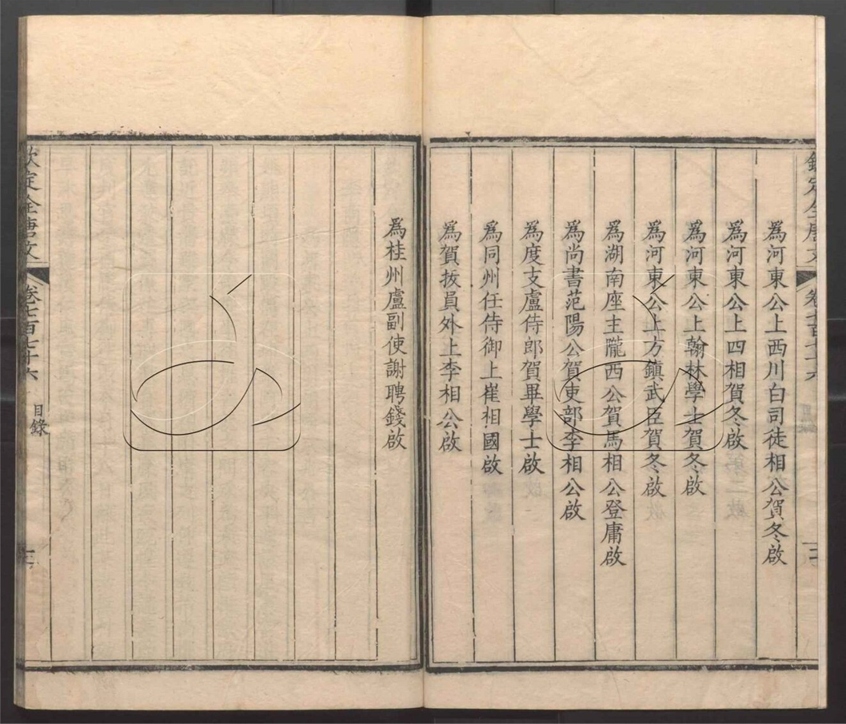 為河東公上西川白司徒相公賀冬啟
為河東公上四相賀冬啟
為河東公上翰林學士賀冬啟
為河東公上方鎮武臣賀冬啟
為湖南座主隴西公賀馬相公登庸啟
為尚書范陽公賀吏部李相公啟
為度支盧侍郎賀畢學士啟
為同州任侍御上崔相國啟
為賀拔員外上李相公啟
為桂州盧副使謝聘錢啟
欽定全唐文
卷七百七十六
目錄